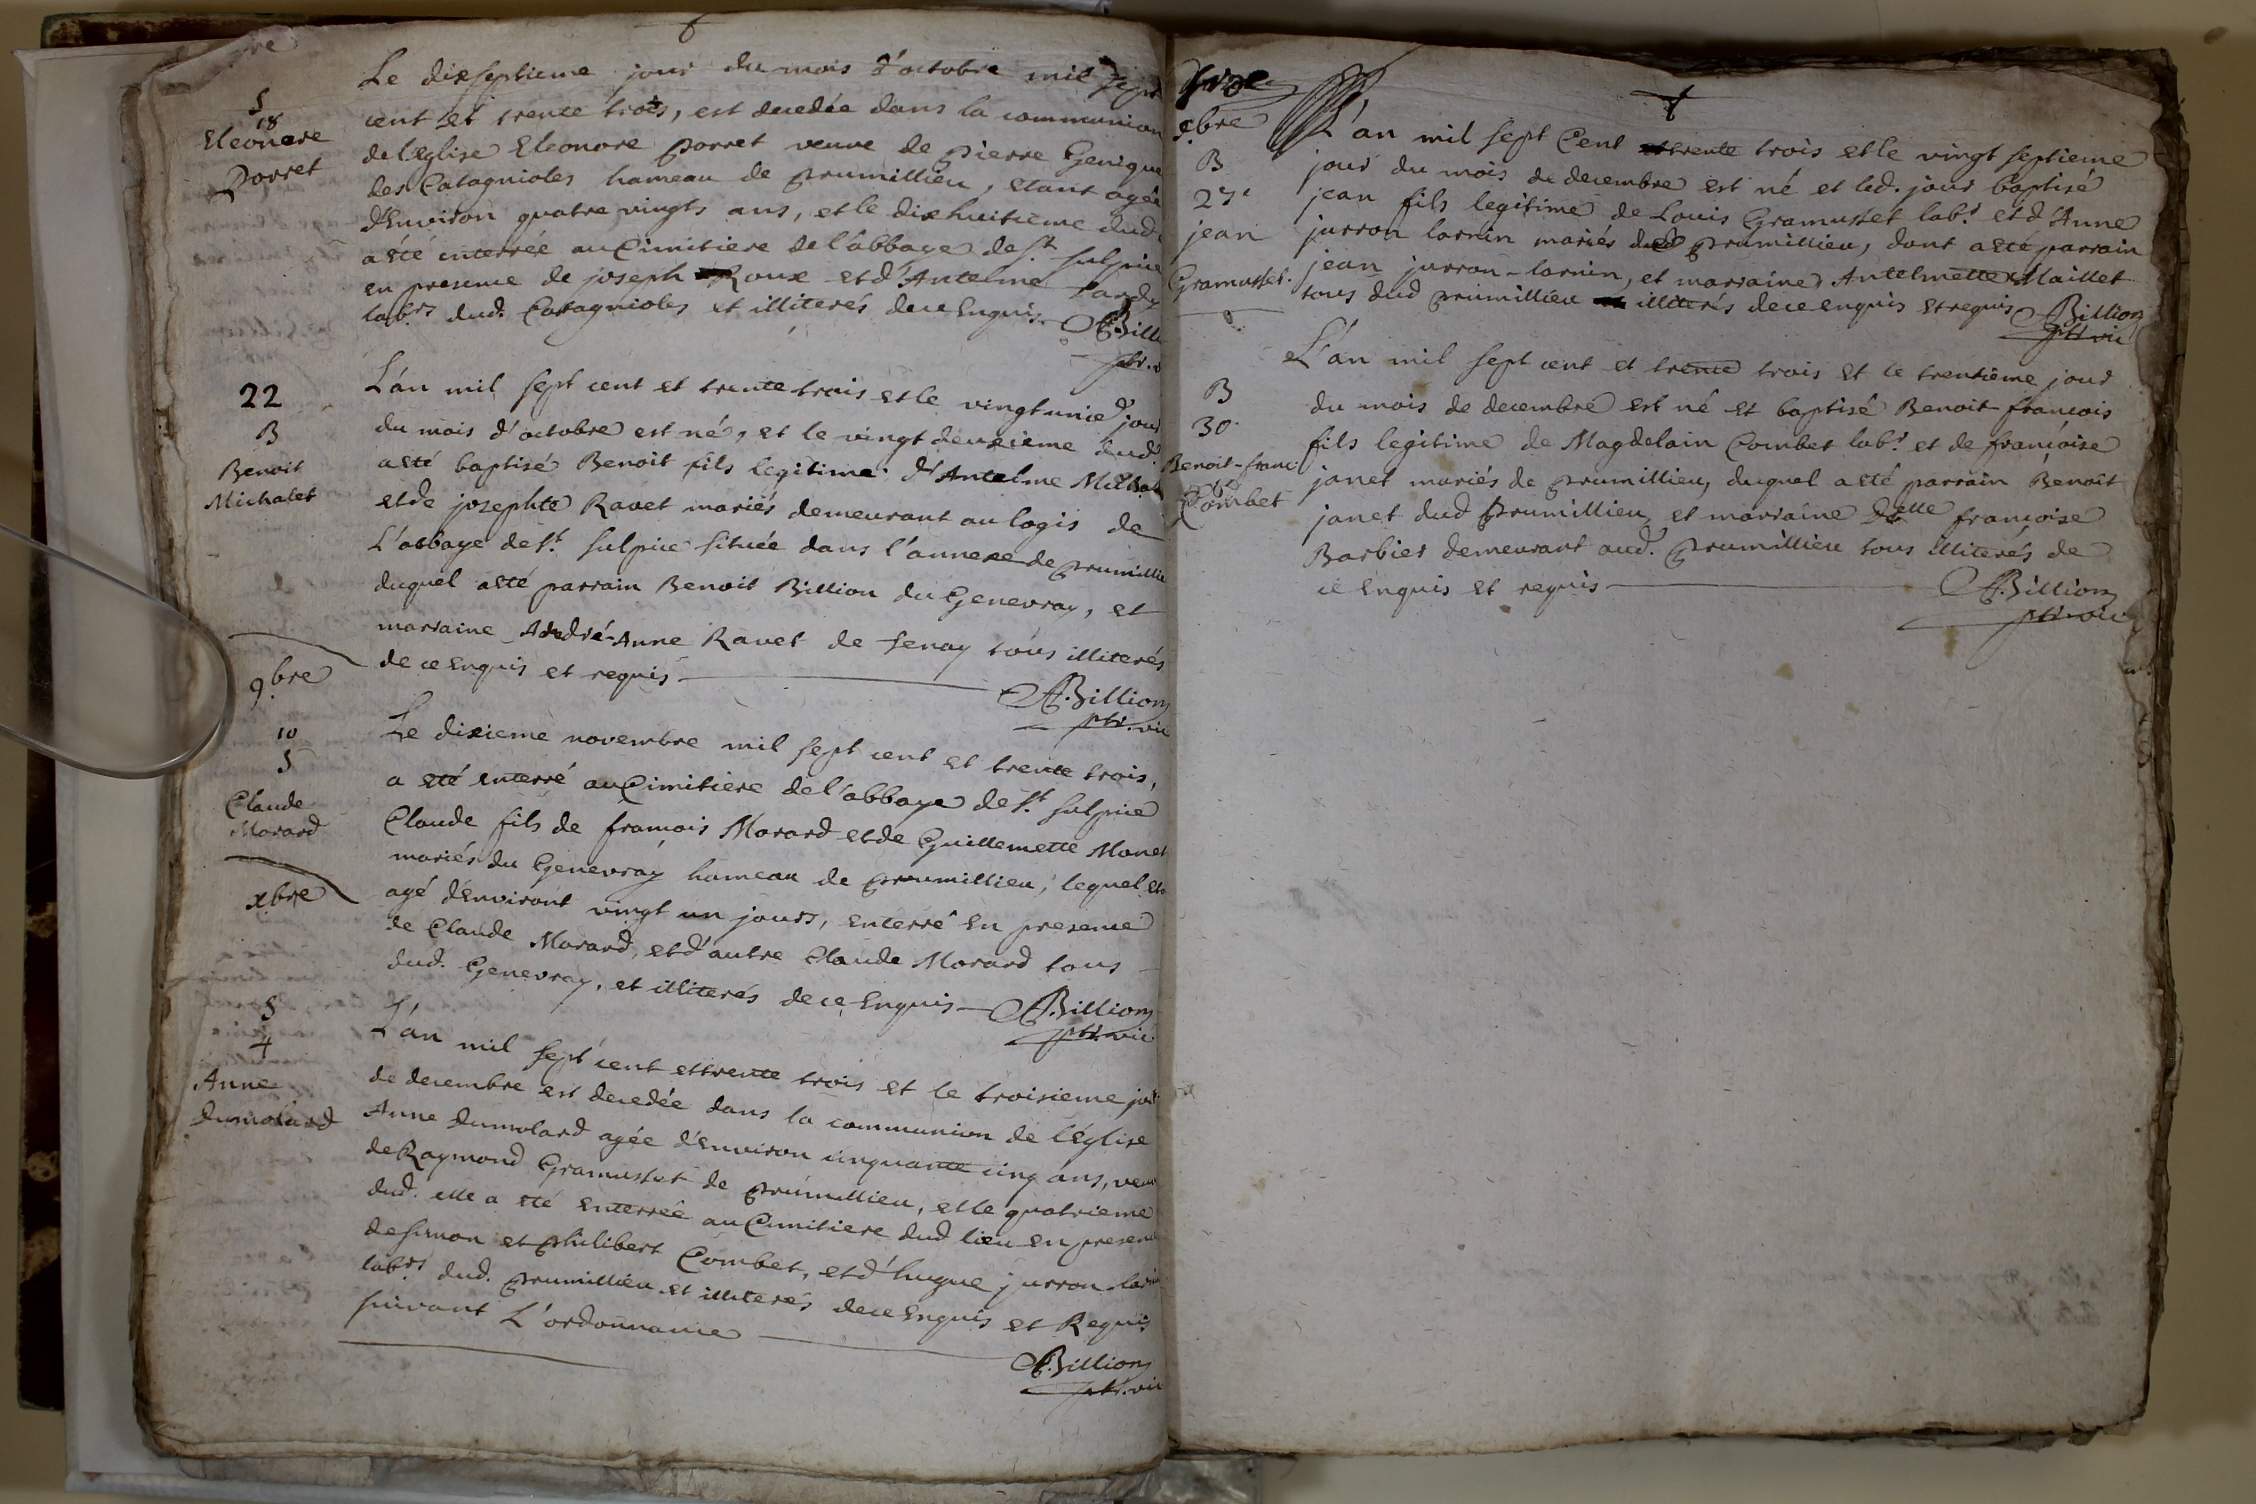 S
18
Eleonore
Porret
Le dixseptieme jour du mois d'octobre mil sept
cent et trente trois, est decedée dans la communion
de l'eglise Eleonore porret veuve de pierre Genique
des Catagnioles hameau de prumillieu, etant agée
d'Environ quatre vingts ans, et le dixhuitieme dud.
a été enterrée au Cimitiere de l'abbaye de st. sulpice
en presence de joseph Roux et d'Antelme Tardy
labrs. dud. Catagnioles et illiterés de ce Enquis Billi
ptr. v
22
B
Benoit
Michalet
L'an mil sept cent et trente trois et le vingt unie. jour
du mois d'octobre est né, et le vingt deuxieme dud.
a eté baptisé Benoit fils legitime d'Antelme Michal
et de josephte Ravet mariés demeurant au logis de
L'abbaye de st. sulpice située dans l'annexe de prumillie
duquel a eté parrain Benoit Billion du Genevray, et
marraine André-Anne Ravet de Tenay tous illiterés
de ce enquis et requis A. Billion
ptr. vic
9bre
10
S
Claude
Morard
Le dixieme novembre mil sept cent et trente trois,
a eté enterré au Cimitiere de l'abbaye de st. sulpice
Claude fils de francois Morard et de Guillemette Monet
mariés du Genevray hameau de prumillieu, lequel et
agé d'Environt vingt un jours, enterré en presence
de Claude Morard, et d'autre Claude Morard tous
dud. Genevray, et illiterés de ce Enquis A. Billion
ptr. vic
xbre
S
4
Anne
Dumolard
L'an mil sept cent et trente trois et le troisieme jour
de decembre est decedée dans la communion de l'Eglise
Anne Dumolard agée d'Environ cinquante cinq ans, veuv
de Raymond Gramusset de prumillieu, et le quatrieme
dud. elle a eté enterrée au Cimitiere dud lieu en presenc
de simon et philibert Combet, et d'hugue jurron larnin
labrs. dud. prumillieu et illiterés de ce Enquis et Requis
suivant L'ordonnance
A. Billion
ptr. vic
xbre
B
27e
jean
Gramusset
L'an mil sept Cent et trente trois et le vingt septieme
jour du mois de decembre est né et led. jour baptisé
jean fils legitime de Louis Gramusset labr. et d'Anne
jurron larnin mariés dud prumillieu, dont a eté parrain
jean jurron-larnin, et marraine Antelmette Maillet
tous dud prumillieu illiterés de ce enquis et requis A. Billion
ptr. vic
B
30
Benoit-franc.
Combet
L'an mil sept cent et trente trois et le trentième jour
du mois de decembre est né et baptisé Benoit-francois
fils legitime de Magdelain Combet labr. et de françoise
janet mariés de prumillieu, duquel a eté parrain Benoit
janet dud prumillieu et marraine Delle françoise
Barbier demeurant aud. prumillieu tous illiterés de
ce enquis et requis A. Billion
ptr. vic